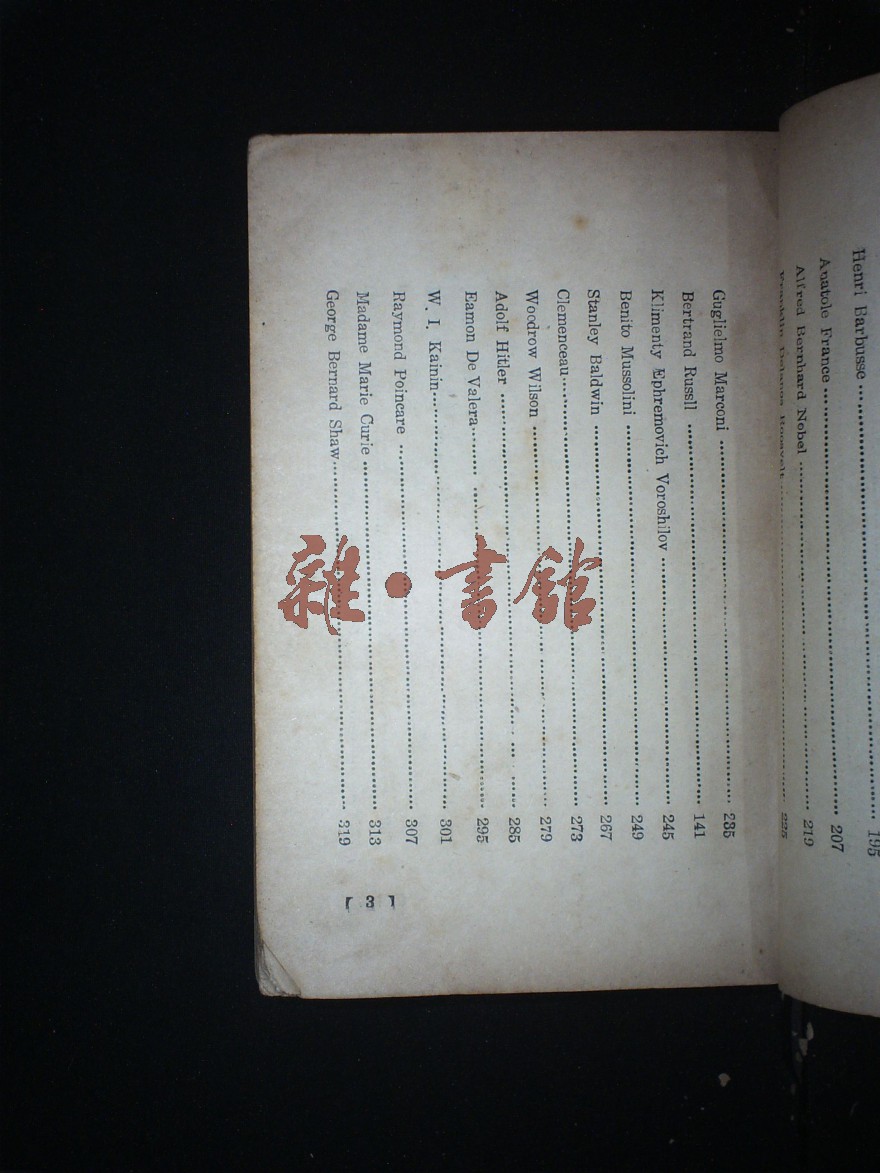 Henri Barbusse 195
Anatole France 207
Alfred Bernhard Nobel 219
225
Guglielmo Marconi 235
Bertrand Russll 141
Klimenty Ephremovich Voroshilov 245
Benito Mussolini 249
Stanley Baldwin 267
Clemenceau 273
Woodrow Wilson 279
Adolf Hitler 285
Eamon De Valera 295
W. I. Kainin 301
Raymond Poincare 307
Madame Marie Curie 313
George Bernard Shaw 319
【 3 】
雜·書館